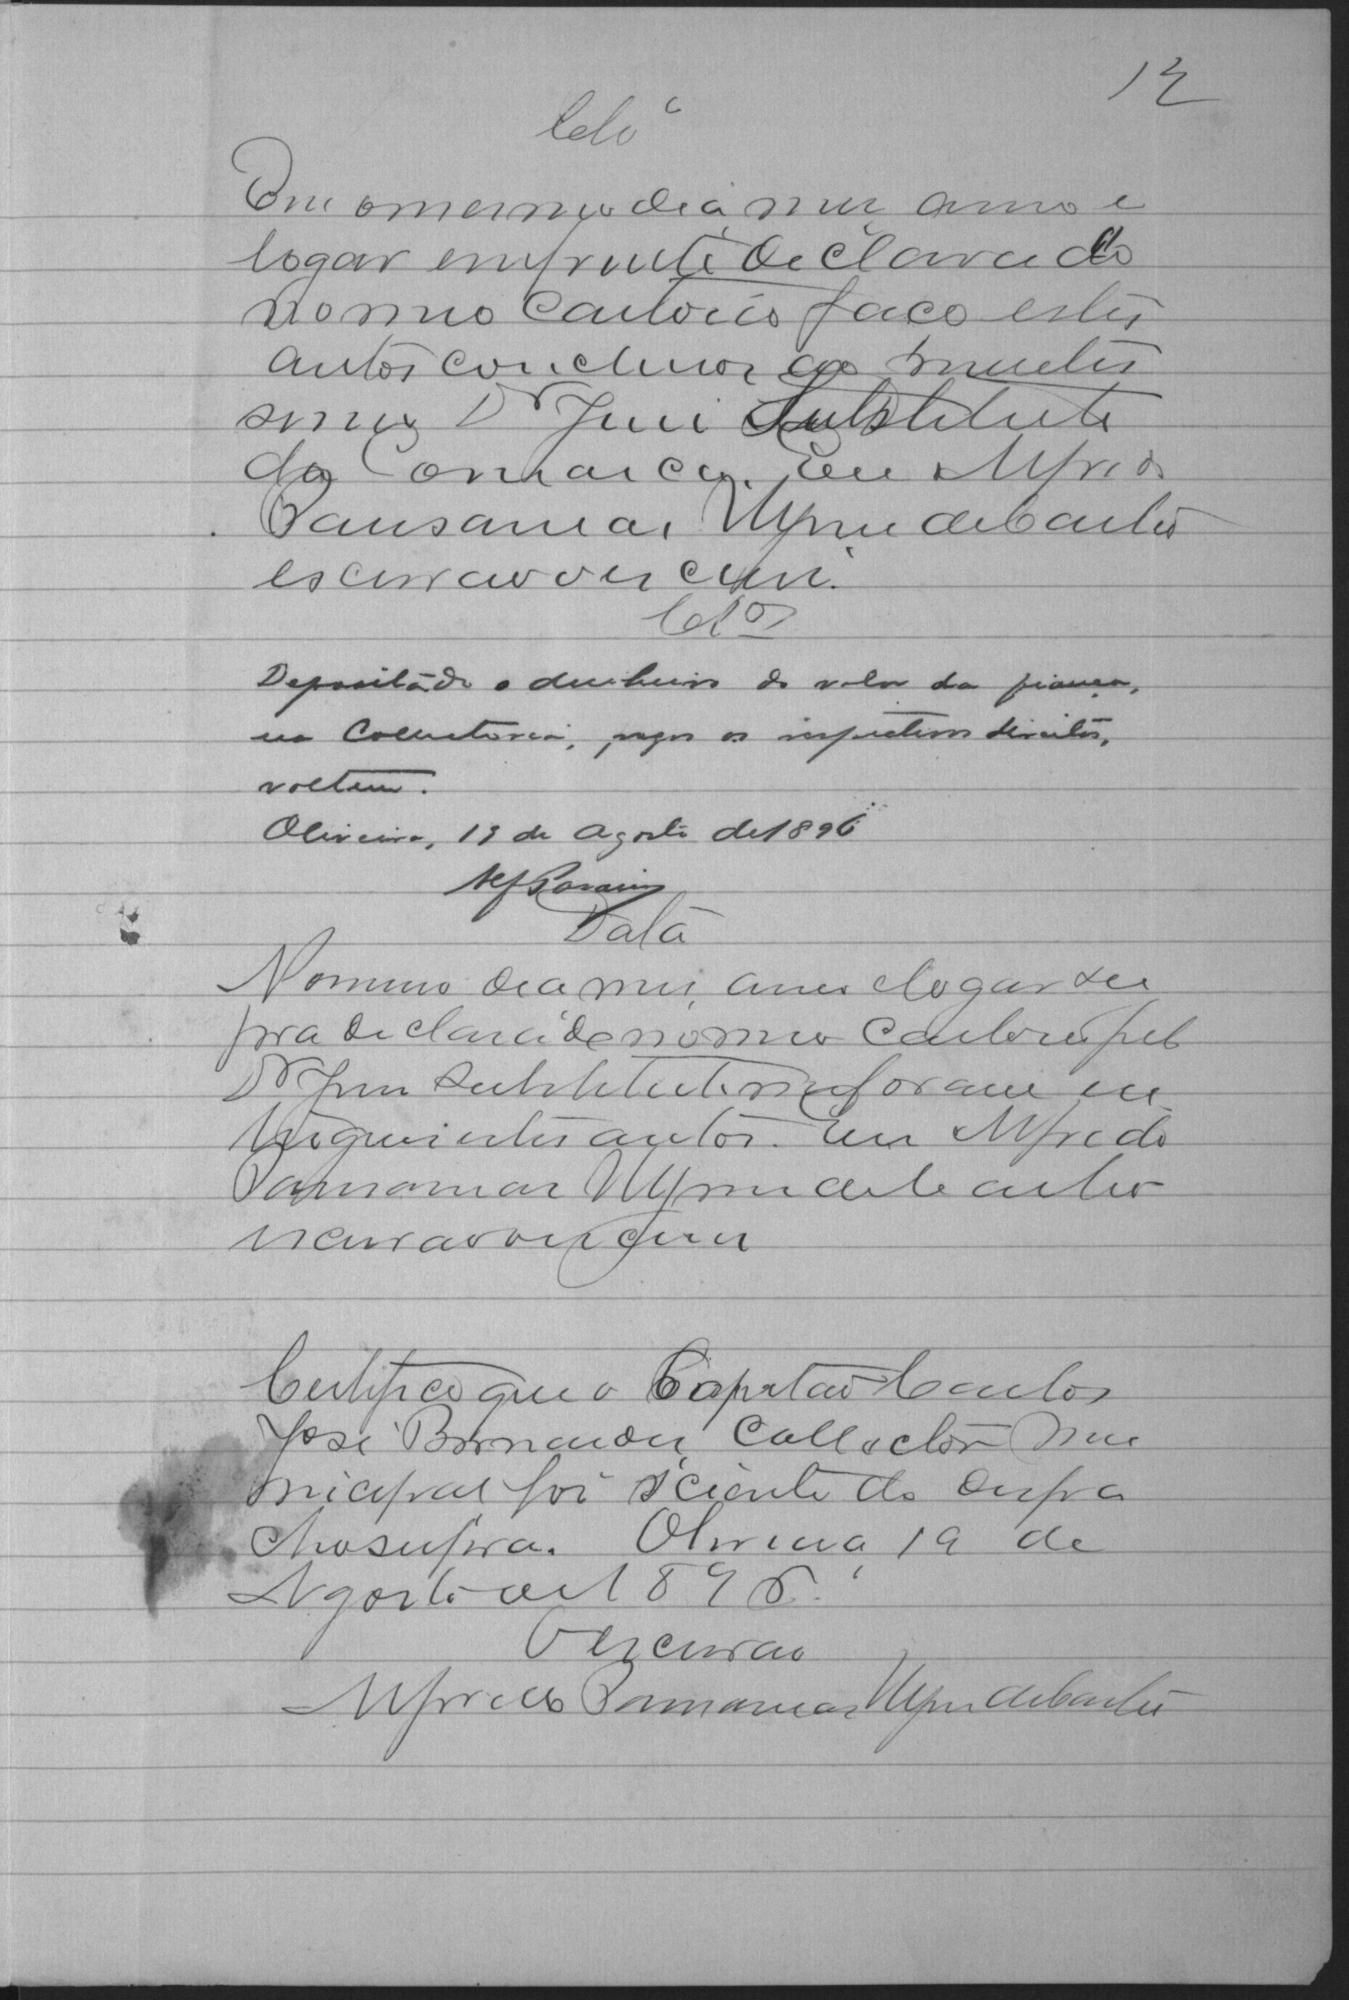 12
Clsº
Em o mesmo dia, mez, anno e
logar em frente declarado
no meu cartorio faço estes
autos conclusos ao meretis
simo Dr Juiz Substituto
da Comarca. Eu Alfredo
Pausanias Alfim de Castro
escrivão o escrevi.
Clºs
Depositado o dinheiro do valor da fiança,
na Collectoria, pagos os respectivos direitos,
voltem.
Oliveira, 19 de Agosto de 1896
Data
No mesmo dia, mez, anno e logar su
pra declarado no meu cartorio pelo
Dr Juiz Substituto me foram en
tregues estes autos. Eu Alfredo
Pausanias de Castro
escrivão o escrevi
Certifico que o Capitão Carlos
José Bernardes Collector Mu
nicipal foi sciente do despa
cho supra. Oliveira 19 de
Agosto de 1896.
O escrivão
Alfredo Pausanias de Castro